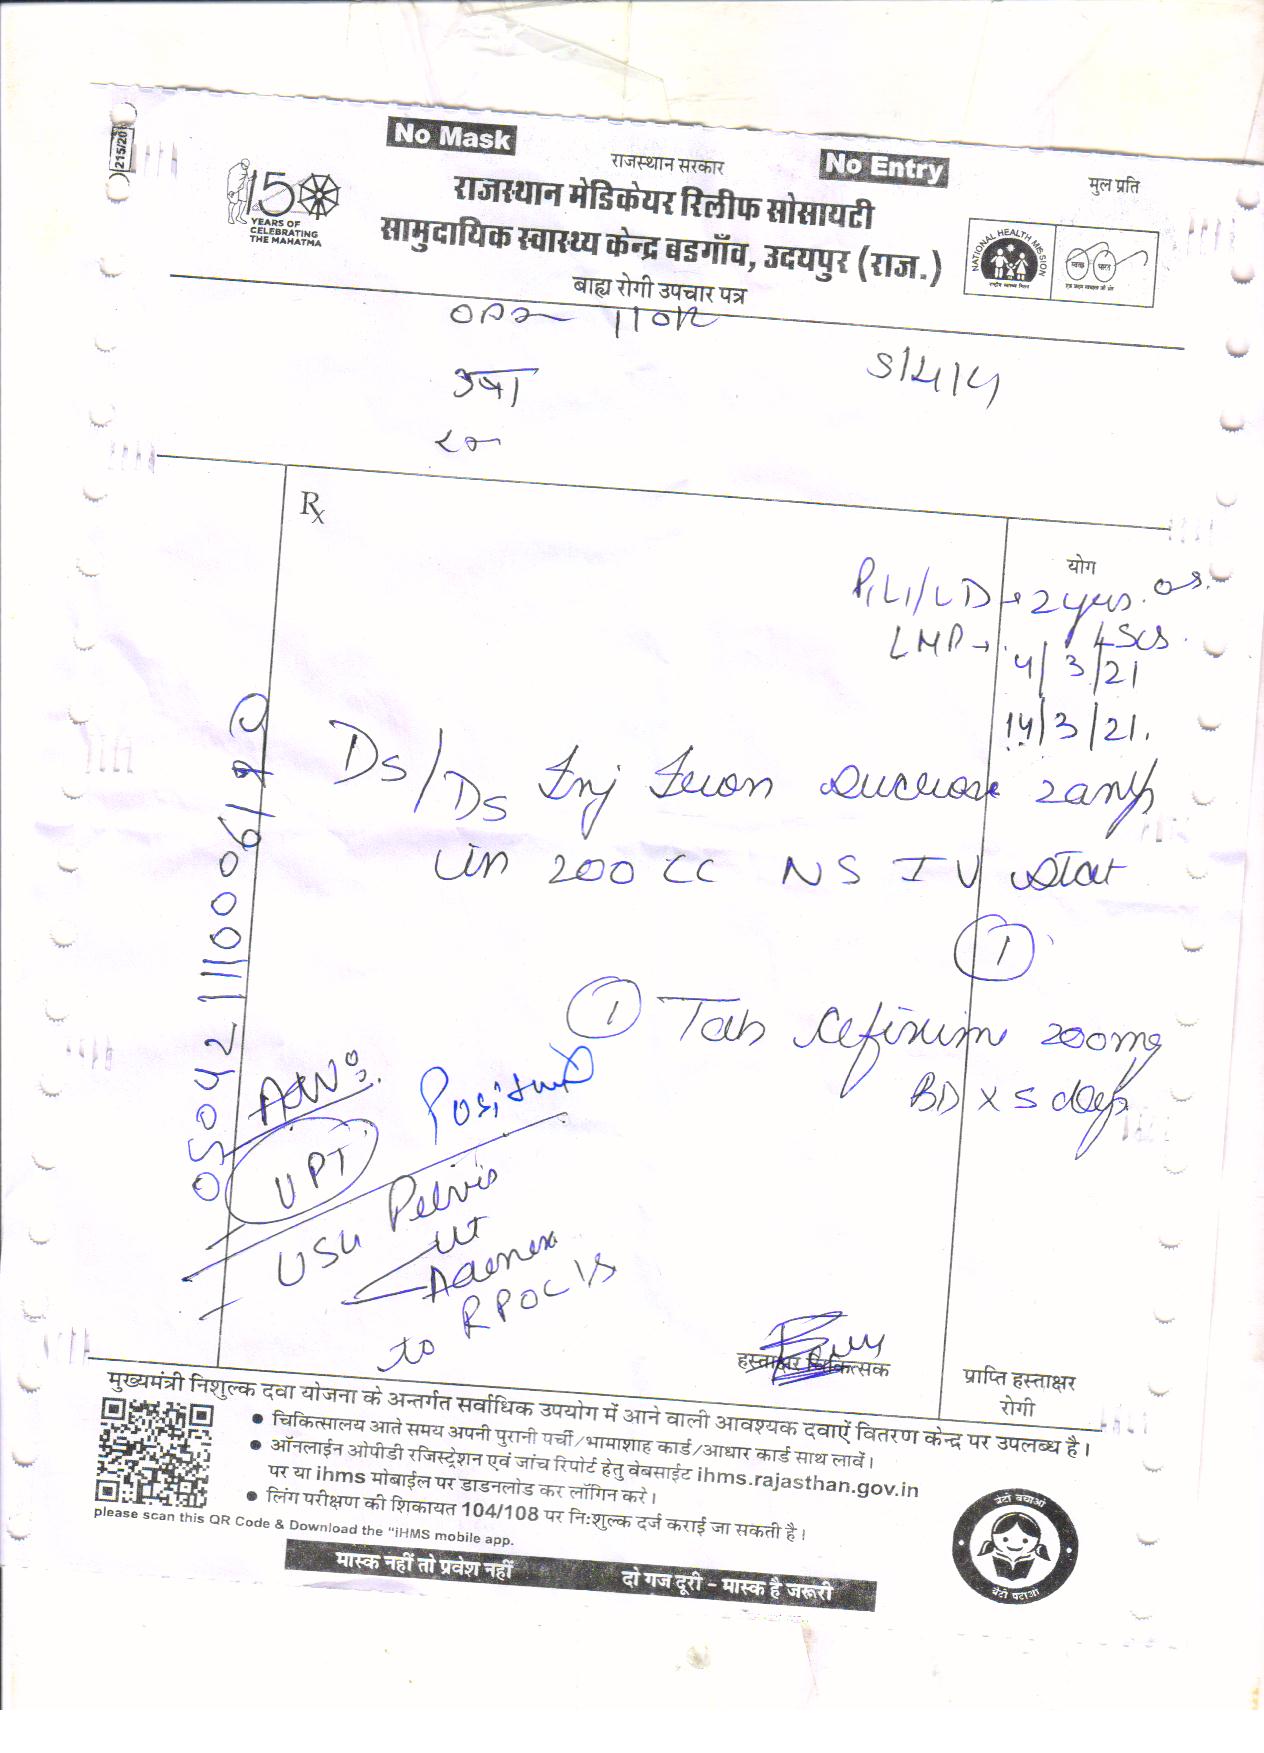 215/20
No Mask
राजस्थान सरकार
No Entry
मुल प्रति
150
YEARS OF
CELEBRATING
THE MAHATMA
राजस्थान मेडिकेयर रिलीफ सोसायटी
सामुदायिक स्वास्थ्य केन्द्र बडगाँव, उदयपुर (राज.)
NATIONAL HEALTH MISSION
राष्ट्रीय स्वास्थ्य मिशन
स्वच्छ भारत
एक कदम स्वच्छता की ओर
बाह्य रोगी उपचार पत्र
उषा
Rx
योग
P1L1/LD → 2 yrs.
LSCS
LMP → 4/3/21
14/3/21.
Ds/Ds Inj Iron sucrose 2amp
in 200 CC NS IV stat
1
1 Tab Cefixime 200mg
BD x 5 days
Adv:
UPT Positive
USG Pelvis
Ut
Adenexa
to RPOC's
हस्ताक्षर चिकित्सक
प्राप्ति हस्ताक्षर
रोगी
मुख्यमंत्री निशुल्क दवा योजना के अन्तर्गत सर्वाधिक उपयोग में आने वाली आवश्यक दवाऐं वितरण केन्द्र पर उपलब्ध है।
• चिकित्सालय आते समय अपनी पुरानी पर्ची/भामाशाह कार्ड/आधार कार्ड साथ लावें।
• ऑनलाईन ओपीडी रजिस्ट्रेशन एवं जांच रिपोर्ट हेतु वेबसाईट ihms.rajasthan.gov.in
पर या ihms मोबाईल पर डाडनलोड कर लॉगिन करे।
• लिंग परीक्षण की शिकायत 104/108 पर निःशुल्क दर्ज कराई जा सकती है।
please scan this QR Code & Download the "iHMS mobile app.
मास्क नहीं तो प्रवेश नहीं दो गज दूरी – मास्क है जरूरी
बेटी बचाओ
बेटी पढाओ